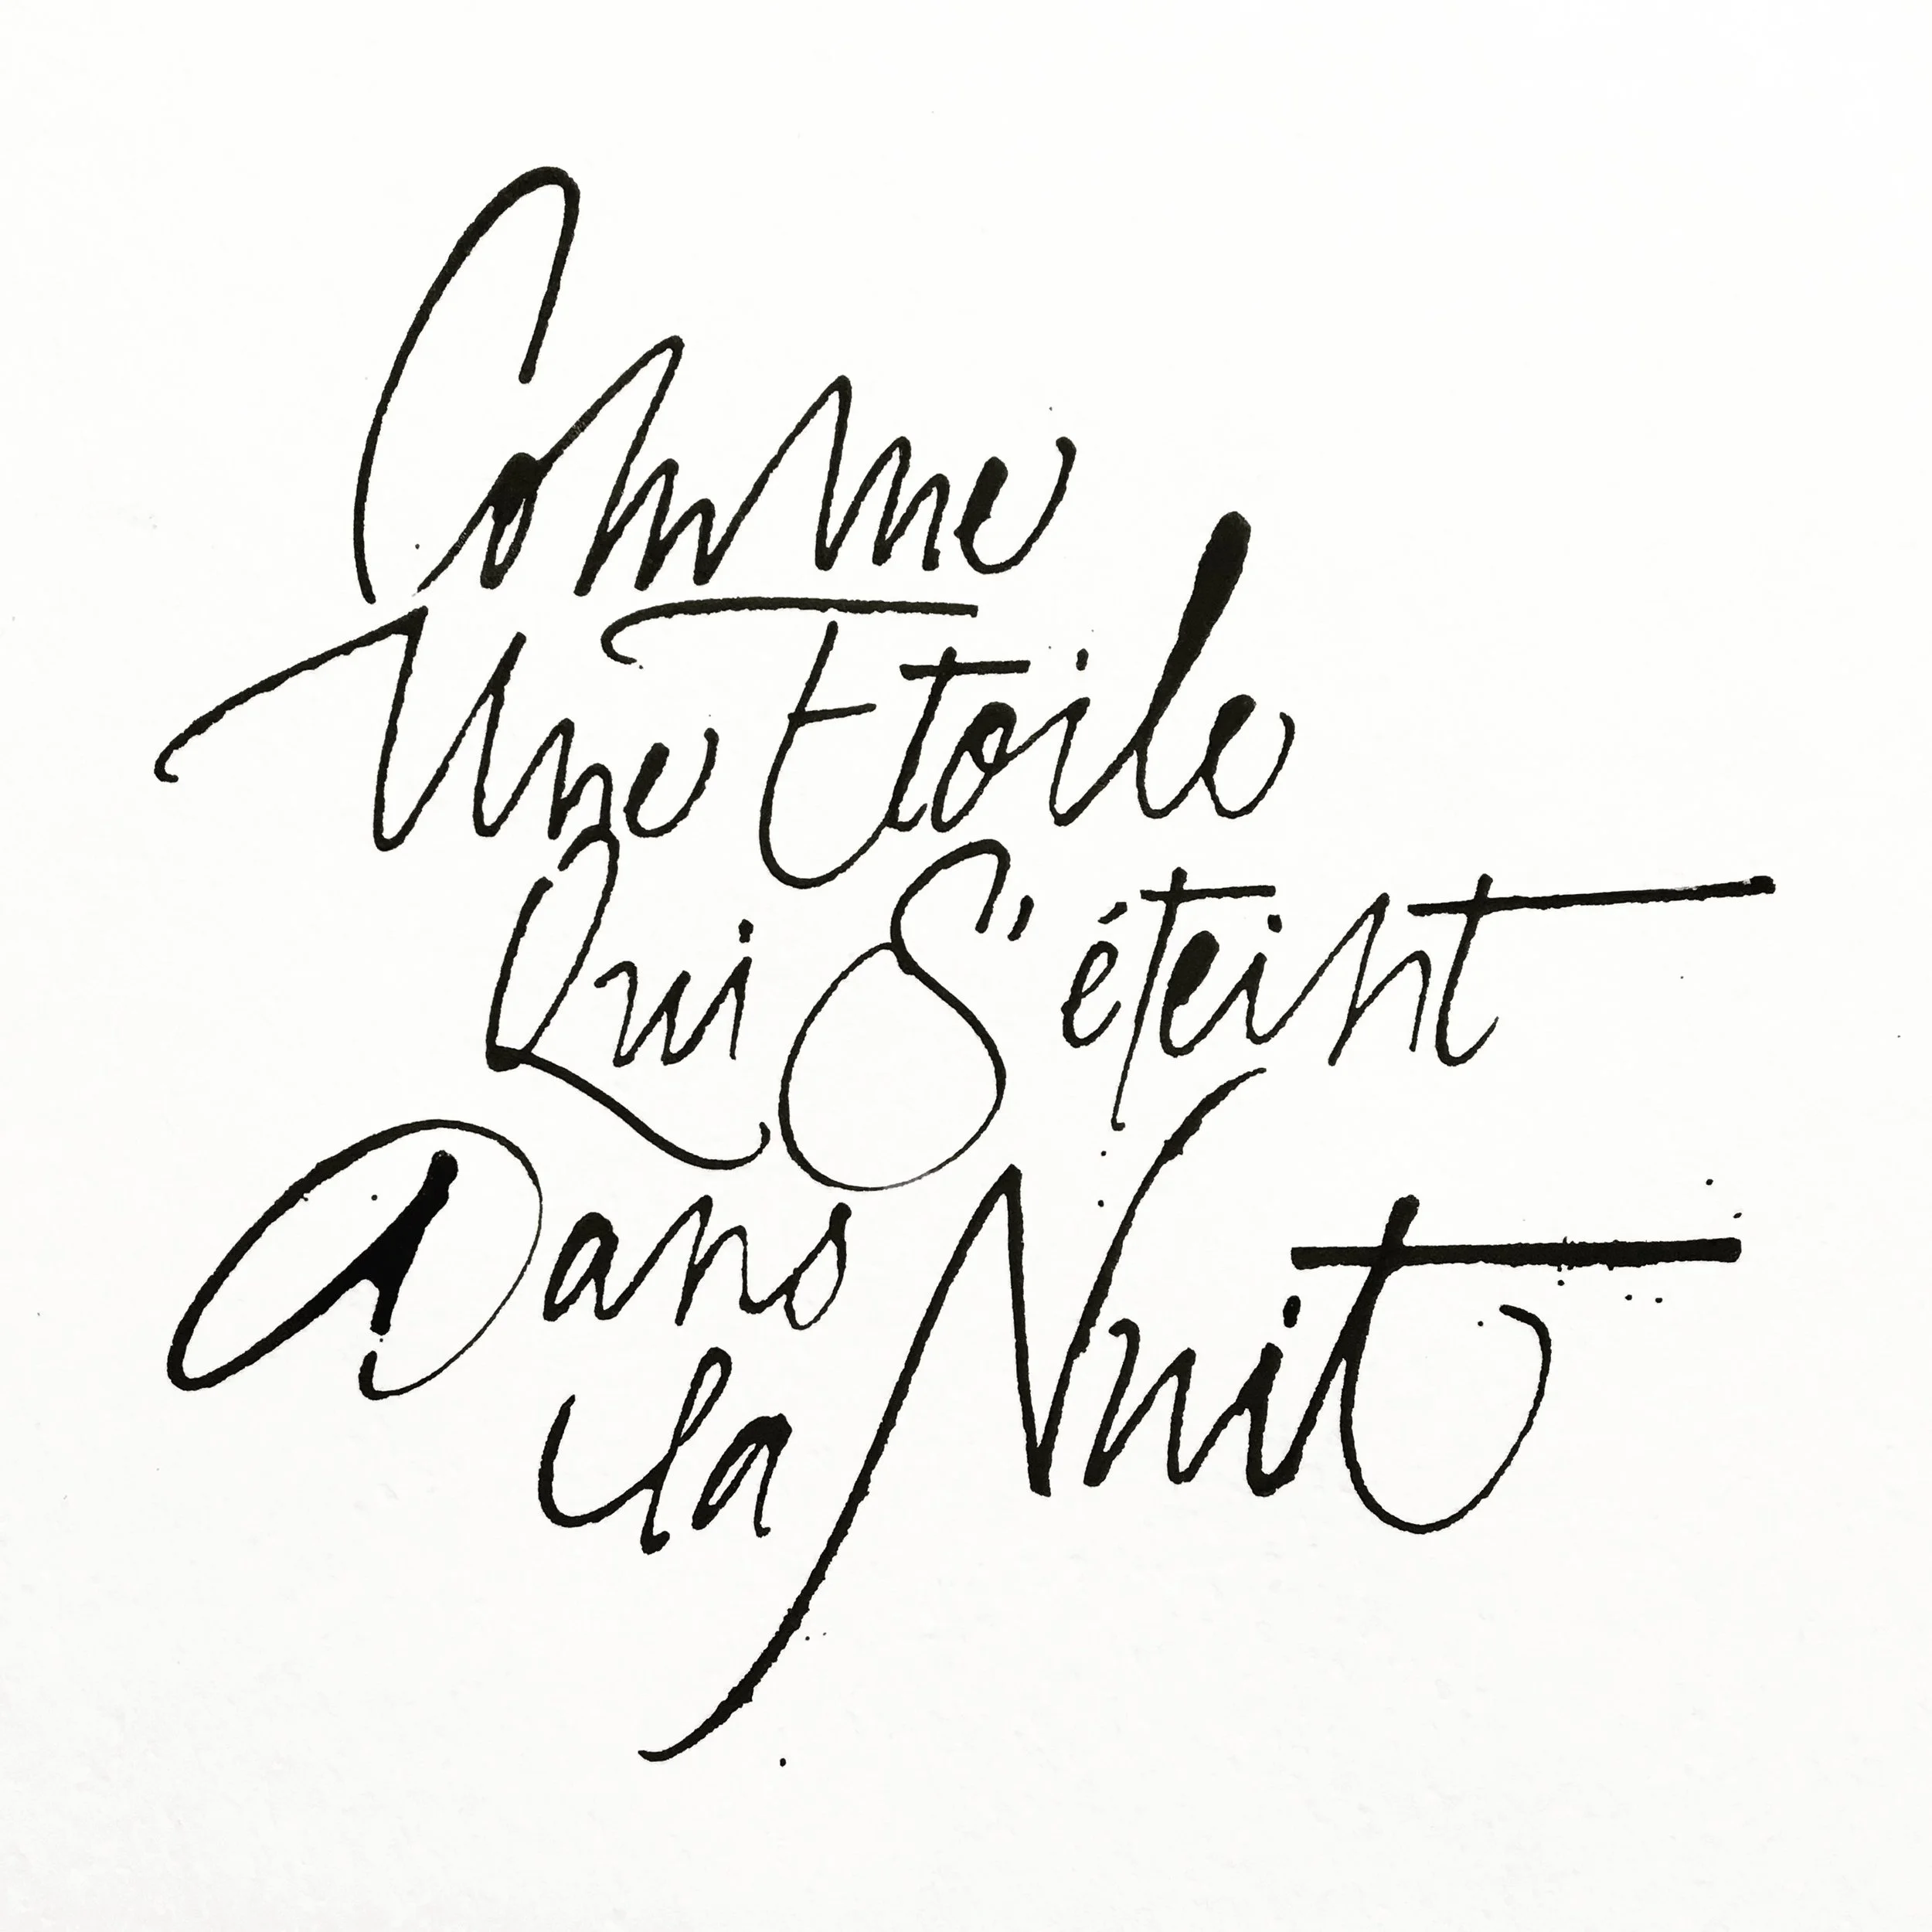 Comme
Une Etoile
Qui S'éteint
Dans
la Nuit